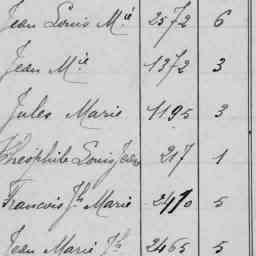 Jean Louis Mie 2572 6
Jean Mie 1372 3
Jules Marie 1195 3
Théophile Louis Jean 217 1
Francois Jh Marie 2410 5
Jean Marie Jh 2465 5